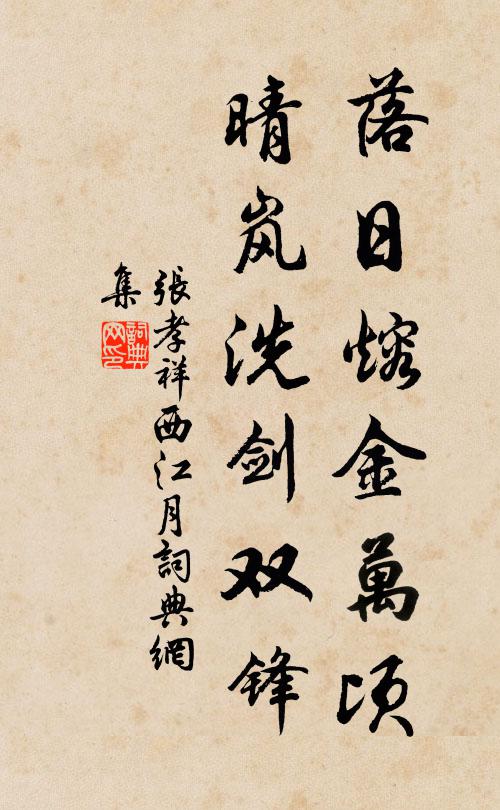 落日熔金萬頃
晴岚洗剑双锋
張孝祥西江月詞典網
集
詞典網印